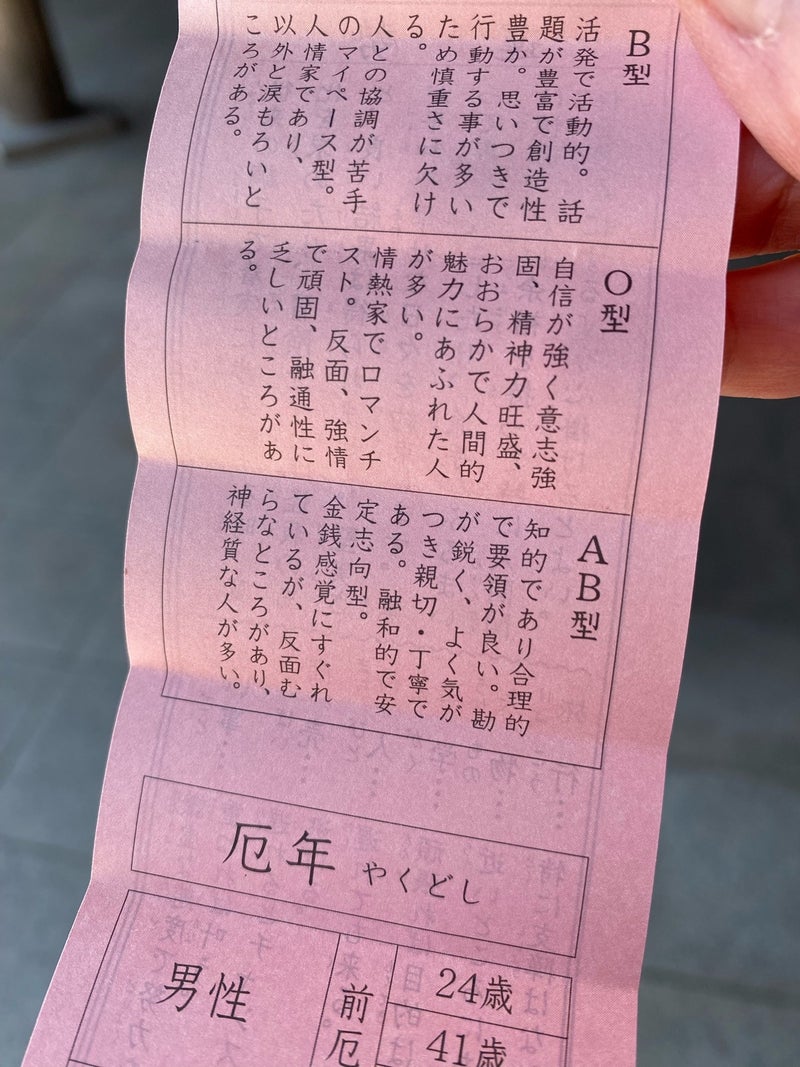 B型
活発で活動的。話
題が豊富で創造性
豊か。思いつきで
行動する事が多い
ため慎重さに欠け
る。
人との協調が苦手
のマイペース型。
人情家であり、
以外と涙もろいと
ころがある。
O型
自信が強く意志強
固、精神力旺盛、
おおらかで人間的
魅力にあふれた人
が多い。
情熱家でロマンチ
スト。反面、強情
で頑固、融通性に
乏しいところがあ
る。
AB型
知的であり合理的
で要領が良い。勘
が鋭く、よく気が
つき親切・丁寧で
ある。融和的で安
定志向型。
金銭感覚にすぐれ
ているが、反面む
らなところがあり、
神経質な人が多い。
厄年 やくどし
男性
前厄
24歳
41歳